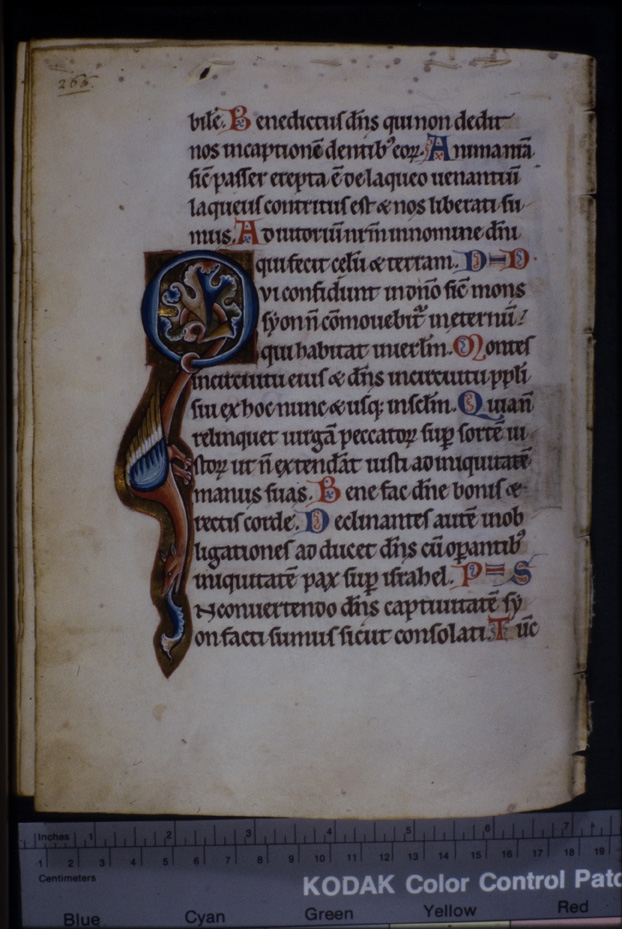 266
bilē. Benedictus dn̄s qui non dedit
nos incaptionē dentib' eoꝝ. Animanr̄a
sic̄ passer erepta ē delaqueo uenantiū
laqueus contritus est & nos liberati su
mus. Adiutoriū nr̄m innomine dn̄i
qui fecit celū & terram. D=D
Qvi confidunt indn̄o sic̄ mons
syon n̄ cōmouebit᷑ ineternū:
qui habitat inierłm. Montes
incircuitu eius & dn̄s incircuitu ppłi
sui exhocnunc & usqꝫ insc̄lm. Quian̄
relinquet uirgā peccatoꝝ sup̄ sortē iu
stoꝝ ut n̄ extendāt iusti adiniquitatē
manus suas. Benefac dn̄e bonis &
rectis corde. Declinantes autē inob
ligationes adducet dn̄s cū opantib'
iniquitatē pax sup̄ israhel. P=S
Nconuertendo dn̄s captiuitatē sy
on facti sumus sicut consolati. Tūc
Inches 1 2 3 4 5 6 7
1 2 3 4 5 6 7 8 9 10 11 12 13 14 15 16 17 18 19
Centimeters
KODAK Color Control Patc
Blue Cyan Green Yellow Red